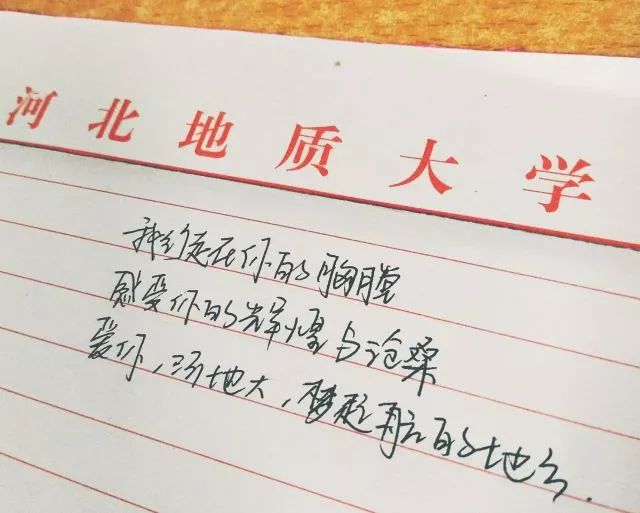 河北地质大学
我们徒在你的胸膛
感受你的辉煌与沧桑
爱你，河地大，梦起航的地方.